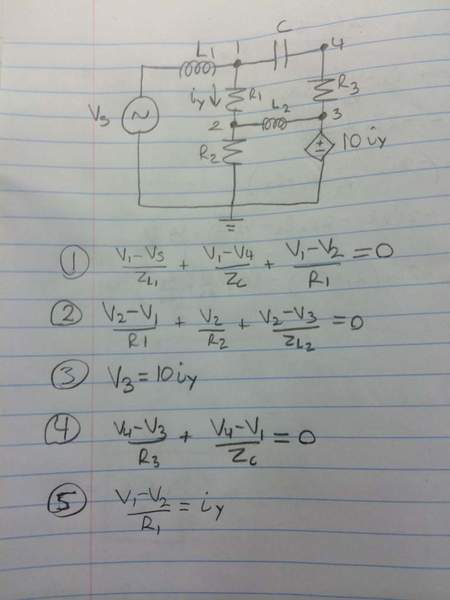 L₁ 1 C 4
i_y ↓ R₁ L₂ R₃
V_s ~ 2 3
R₂ ± 10 i_y
① (V₁-V_s)/Z_L₁ + (V₁-V₄)/Z_c + (V₁-V₂)/R₁ = 0
② (V₂-V₁)/R₁ + V₂/R₂ + (V₂-V₃)/Z_L₂ = 0
③ V₃ = 10 i_y
④ (V₄-V₃)/R₃ + (V₄-V₁)/Z_c = 0
⑤ (V₁-V₂)/R₁ = i_y